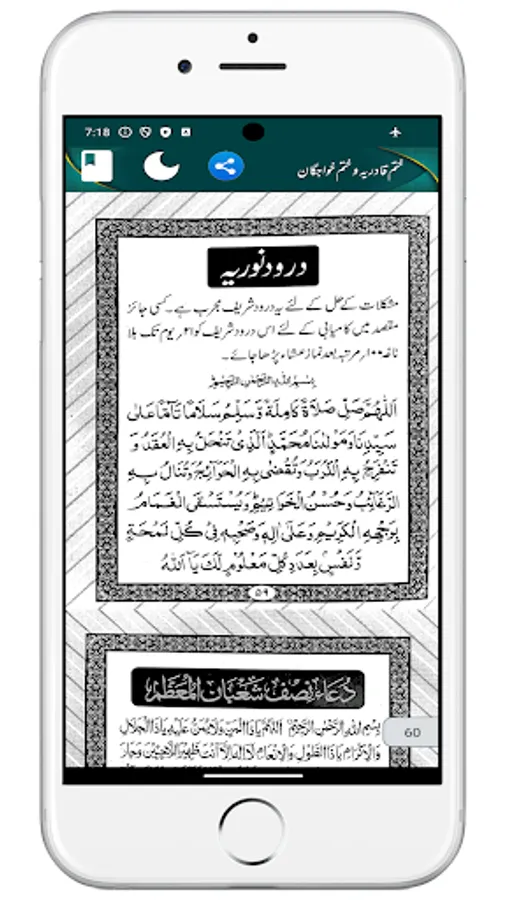 7:18
ختم قادریہ و ختم خواجگان
درود نوریہ
مشکلات کے حل کے لئے یہ درود شریف مجرب ہے۔ کسی جائز
مقصد میں کامیابی کے لئے اس درود شریف کو ۲۱؍ یوم تک بلا
ناغہ ۱۰۰؍ مرتبہ بعد نماز عشاء پڑھا جائے۔
بِسْمِ اللهِ الرَّحْمٰنِ الرَّحِيْمِ
اَللّٰهُمَّ صَلِّ صَلَاةً كَامِلَةً وَّسَلِّمْ سَلَامًا تَامًّا عَلٰى
سَيِّدِنَا وَمَوْلٰنَا مُحَمَّدِ ۨالَّذِىْ تَنْحَلُّ بِهِ الْعُقَدُ وَ
تَنْفَرِجُ بِهِ الْكُرَبُ وَتُقْضٰى بِهِ الْحَوَائِجُ وَتُنَالُ بِهِ
الرَّغَائِبُ وَحُسْنُ الْخَوَاتِيْمِ وَيُسْتَسْقَى الْغَمَامُ
بِوَجْهِهِ الْكَرِيْمِ وَعَلٰى اٰلِهٖ وَصَحْبِهٖ فِىْ كُلِّ لَمْحَةٍ
وَّنَفَسٍ بِعَدَدِ كُلِّ مَعْلُوْمٍ لَّكَ يَا اَللّٰهُ
۵۹
دُعَاءِ نِصْف شَعْبَانِ الْمُعَظَّم
بِسْمِ اللهِ الرَّحْمٰنِ الرَّحِيْمِ اَللّٰهُمَّ يَاذَا الْمَنِّ وَلَا يُمَنُّ عَلَيْهِ يَاذَا الْجَلَالِ
وَالْاِكْرَامِ يَاذَا الطَّوْلِ وَالْاِنْعَامِ لَا اِلٰهَ اِلَّا اَنْتَ ظَهْرُ اللَّاجِيْنَ وَجَارُ
60